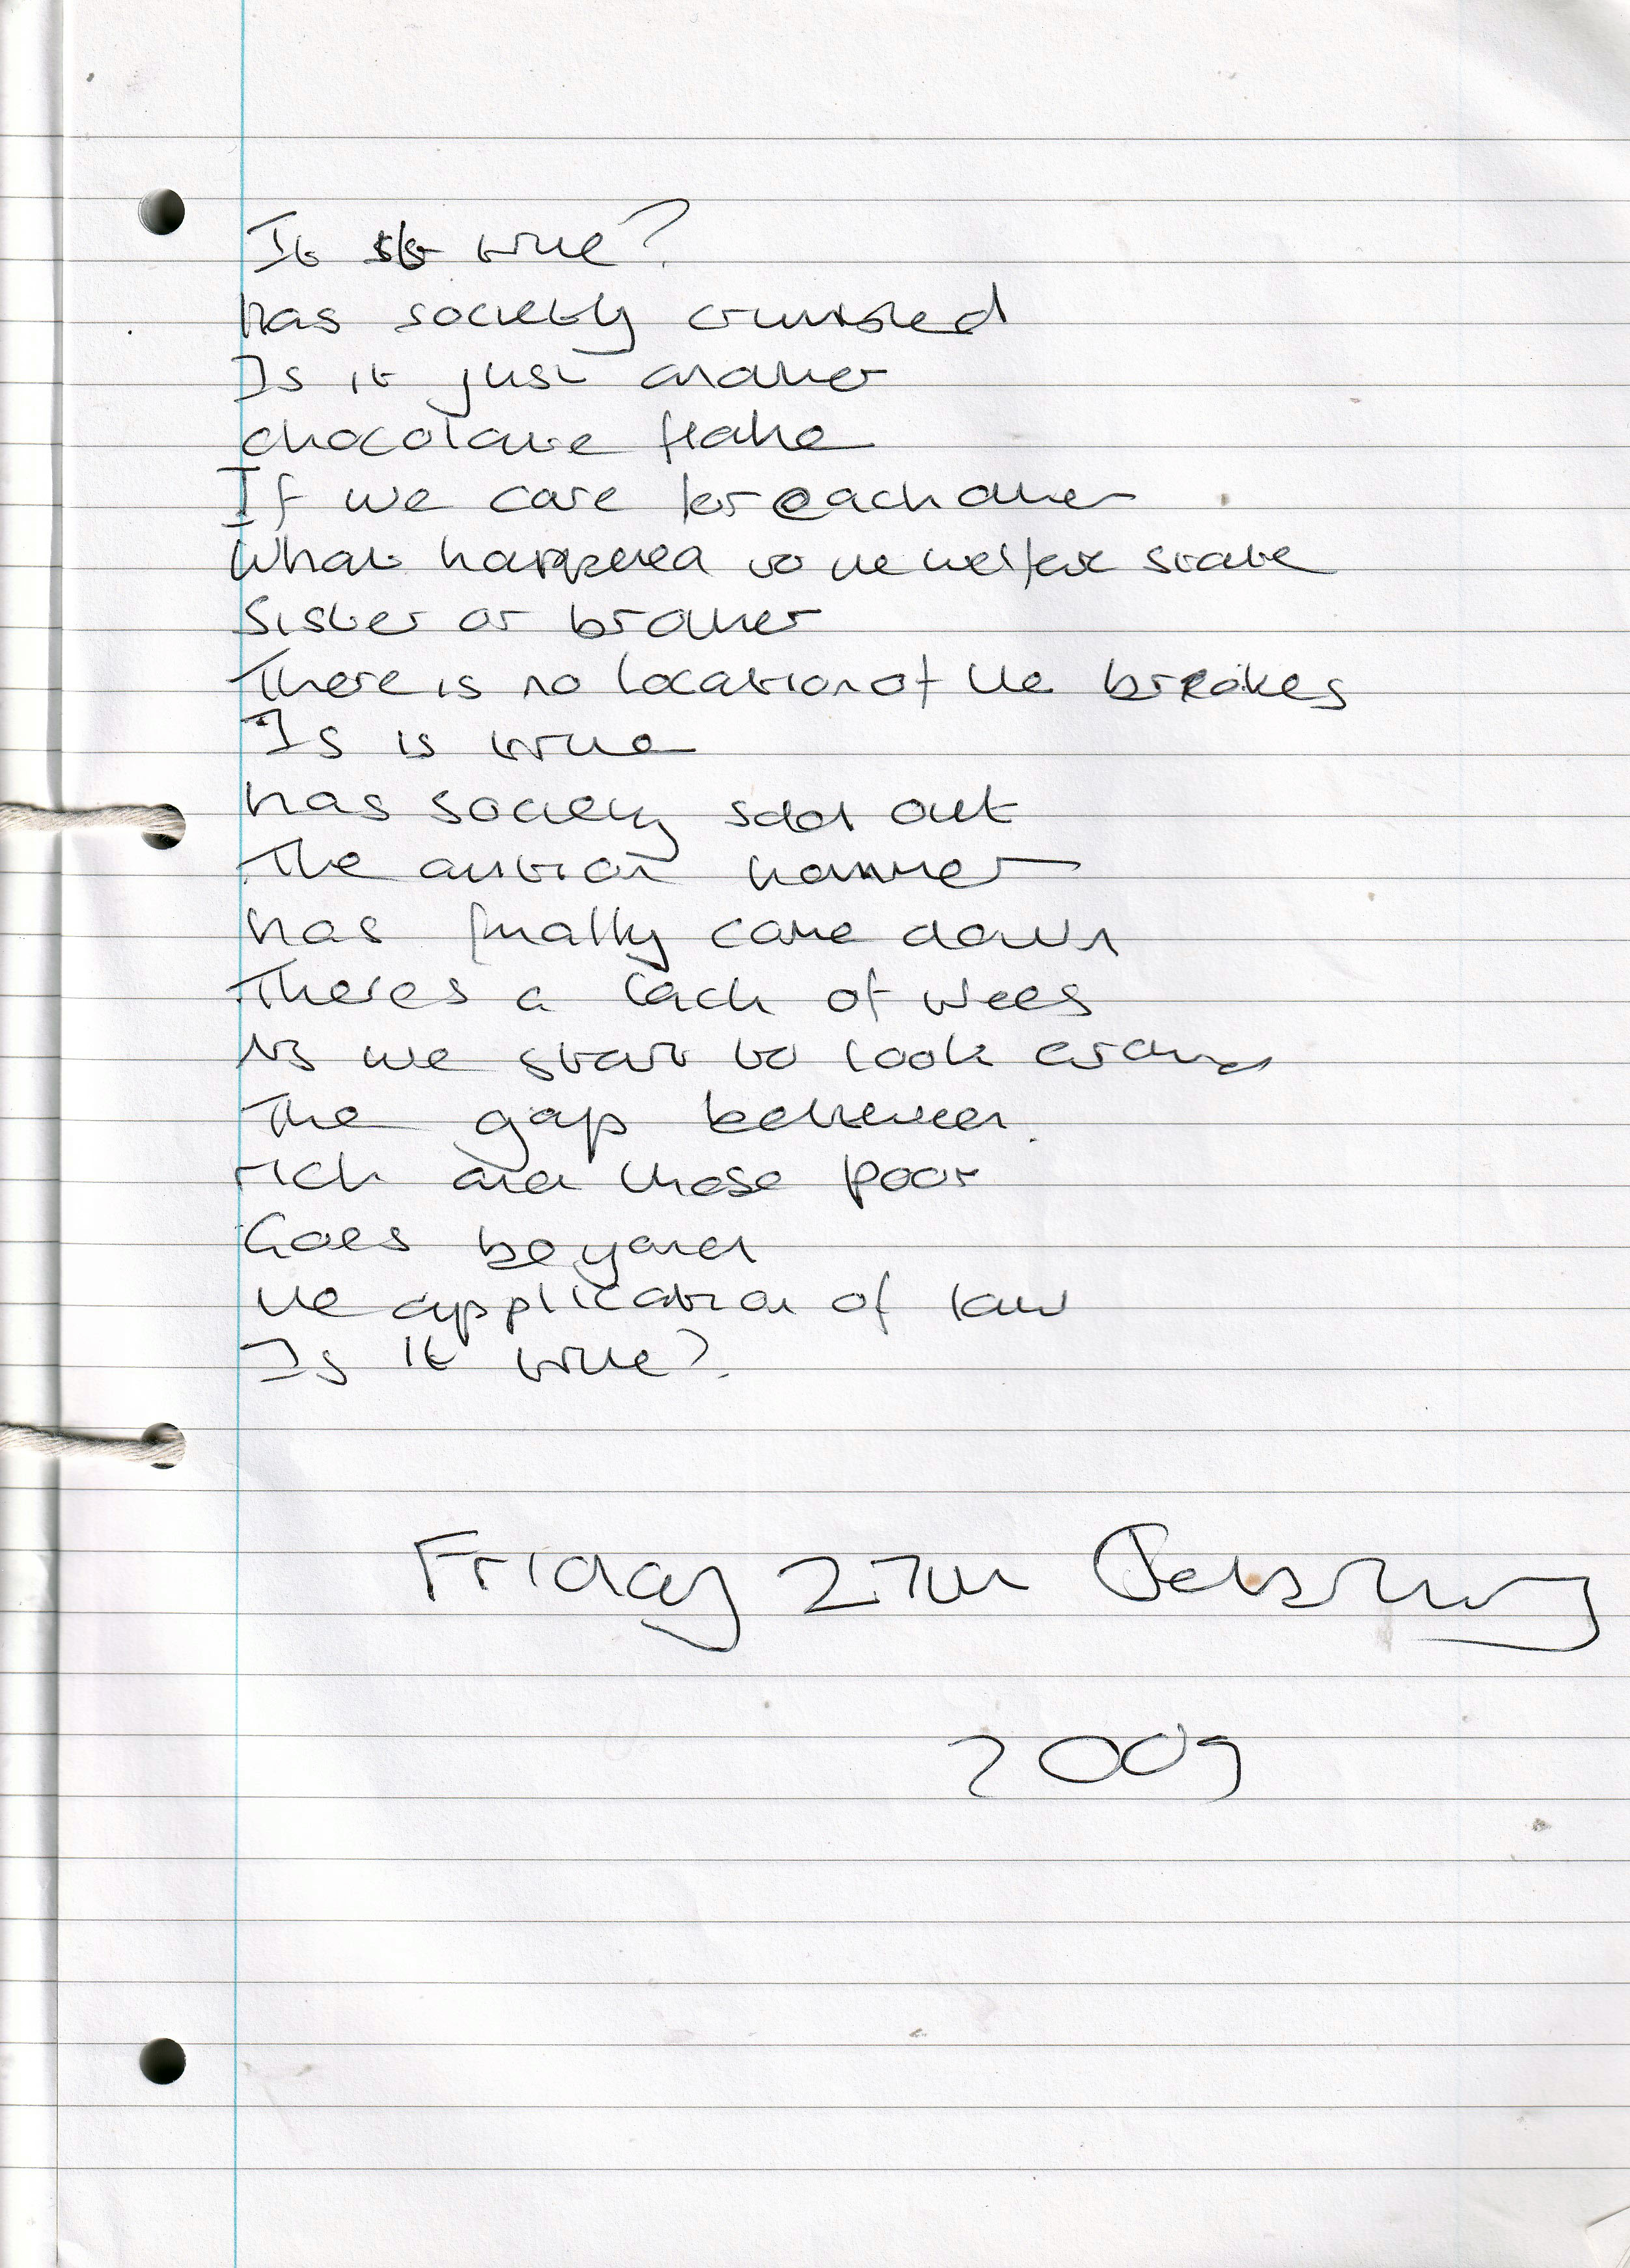 It is true?
has society crumbled
Is it just another
chocolate flake
If we care for eachother
What happened to the welfare state
Sister or brother
There is no location of the breakes
Is is true
has society sold out
The aution hammer
has finally come down
Theres a lack of trees
As we start to look around
The gap between.
rich and those poor
Goes beyond
the application of law
Is it true?
Friday 27th February
2009